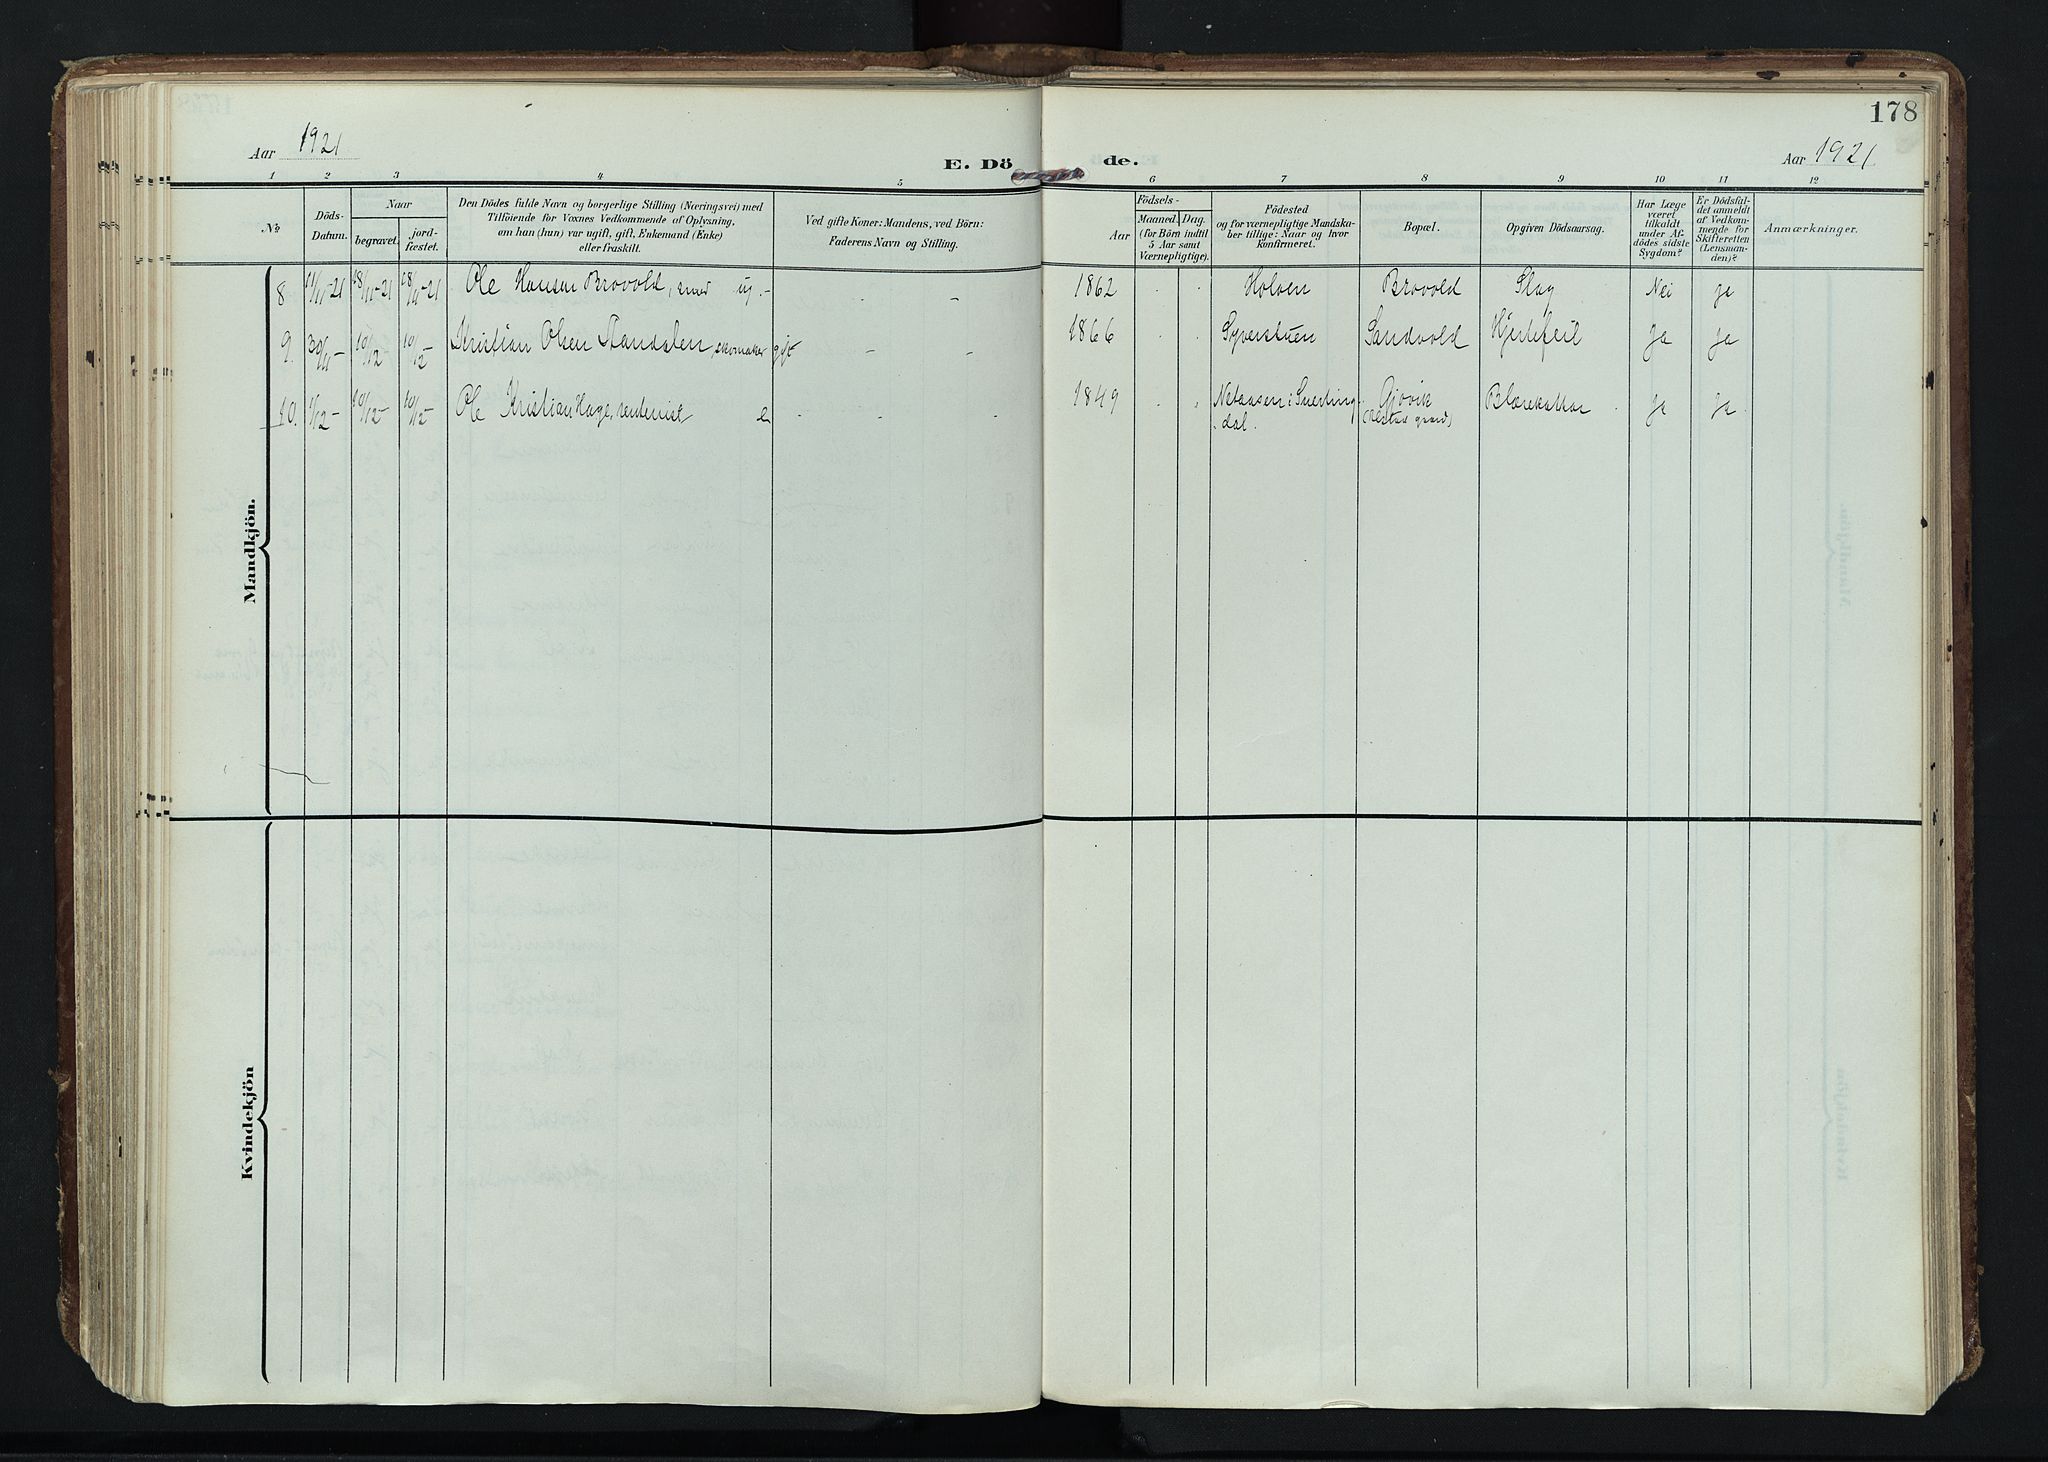 178
Aar 1921
E. Dö
de.
Aar 1921
1 2 3 4 5 6 7 8 9 10 11 12
№
Döds-
Datum.
Naar
begravet.
jord-
fæstet.
Den Dödes fulde Navn og borgerlige Stilling (Næringsvei) med
Tilföiende for Voxnes Vedkommende af Oplysning,
om han (hun) var ugift, gift, Enkemand (Enke)
eller fraskilt.
Ved gifte Koner: Mandens, ved Börn:
Faderens Navn og Stilling.
Födsels-
Aar
Maaned.
Dag.
(for Börn indtil
5 Aar samt
Værnepligtige).
Födested
og for værnepligtige Mandska-
ber tillige: Naar og hvor
Konfirmeret.
Bopæl.
Opgiven Dödsaarsag.
Har Læge
været
tilkaldt
under Af-
dödes sidste
Sygdom?
Er Dödsfal-
det anmeldt
af Vedkom-
mende for
Skifteretten
(Lensman-
den)?
Anmærkninger.
Mandkjön.
8 11/11-21 18/11-21 18/11-21 Ole Hansen Brovold, smed ug. - - 1862 Holoen Brovold Slag Nei ja
9. 30/11- 10/12 10/12- Kristian Olsen Standalen, skomaker gift - - 1866 Syverstuen Sandvold Hjertefeil Ja Ja
10. 1/12- 10/12- 10/12- Ole Kristian Hage, rentenist e - - 1849 Netaasen i Snerting- Gjøvik Blærekattar. Ja Ja.
dal. (Alstad gaard)
Kvindekjön